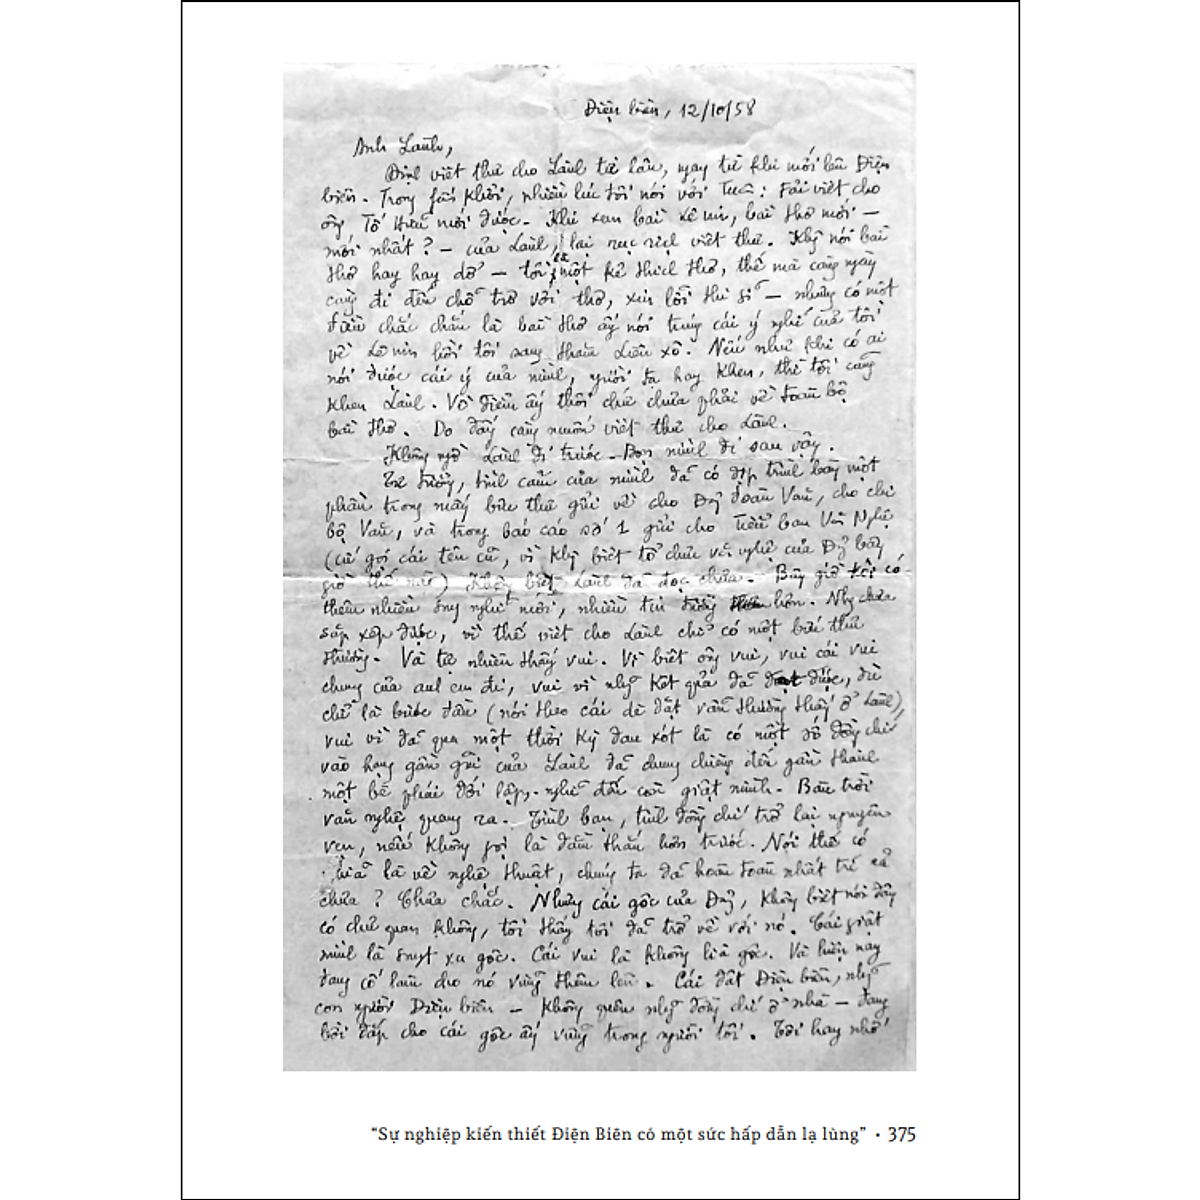 Điện biên, 12/10/58
Anh Lành,
Định viết thư cho Lành từ lâu, ngay từ khi mới lên Điện
biên. Trong fấn khởi, nhiều lúc tôi nói với Tuân: Fải viết cho
ông Tố Hữu mới được. Khi xem bài Lê nin, bài thơ mới —
mới nhất? — của Lành, lại rục rịch viết thư. Khg nói bài
thơ hay hay dở — tôi là một kẻ thích thơ, thế mà càng ngày
càng đi đến chỗ trơ với thơ, xin lỗi thi sĩ — nhưng có một
điều chắc chắn là bài thơ ấy nói trúng cái ý nghĩ của tôi
về Lê nin hồi tôi sang thăm Liên xô. Nếu như khi có ai
nói được cái ý của mình, người ta hay khen, thì tôi cũng
khen Lành. Về điểm ấy thôi chứ chưa phải về toàn bộ
bài thơ. Do đấy càng muốn viết thư cho Lành.
Không ngờ Lành đi trước. Bọn mình đi sau vậy.
Tư tưởng, tình cảm của mình đã có dịp trình bày một
phần trong mấy bức thư gửi về cho Đảng đoàn Văn, cho chi
bộ Văn, và trong báo cáo số 1 gửi cho Tiểu ban Văn Nghệ
(cứ gọi cái tên cũ, vì khg biết tổ chức văn nghệ của Đảng bây
giờ thế nào) Không biết Lành đã đọc chưa. Bây giờ tôi có
thêm nhiều suy nghĩ mới, nhiều tư tưởng hơn. Nhg chưa
sắp xếp được, vì thế viết cho Lành chỉ có một bức thư
thường. Và tự nhiên thấy vui. Vì biết ông vui, vui cái vui
chung của anh em đi, vui vì nhg kết quả đã đạt được, dù
chỉ là bước đầu (nói theo cái dè dặt vẫn thường thấy ở Lành),
vui vì đã qua một thời kỳ đau xót là có một số đồng chí
vào hạng gần gũi của Lành đã chung chiêng đến gần thành
một bè phái đối lập, nghĩ đến còn giật mình. Bầu trời
văn nghệ quang ra. Tình bạn, tình đồng chí trở lại nguyên
vẹn, nếu không gọi là đằm thắm hơn trước. Nói thế có
là về nghệ thuật, chúng ta đã hoàn toàn nhất trí cả
chưa? Chưa chắc. Nhưng cái gốc của Đảng, không biết nói đây
có chủ quan không, tôi thấy tôi đã trở về với nó. Cái giật
mình là suýt xa gốc. Cái vui là không lìa gốc. Và hiện nay
đang cố làm cho nó vững thêm lên. Cái đất Điện biên, nhg
con người Điện biên — không quên nhg đồng chí ở nhà — đang
bồi đắp cho cái gốc ấy vững trong người tôi. Tôi hay nhớ
“Sự nghiệp kiến thiết Điện Biên có một sức hấp dẫn lạ lùng” • 375